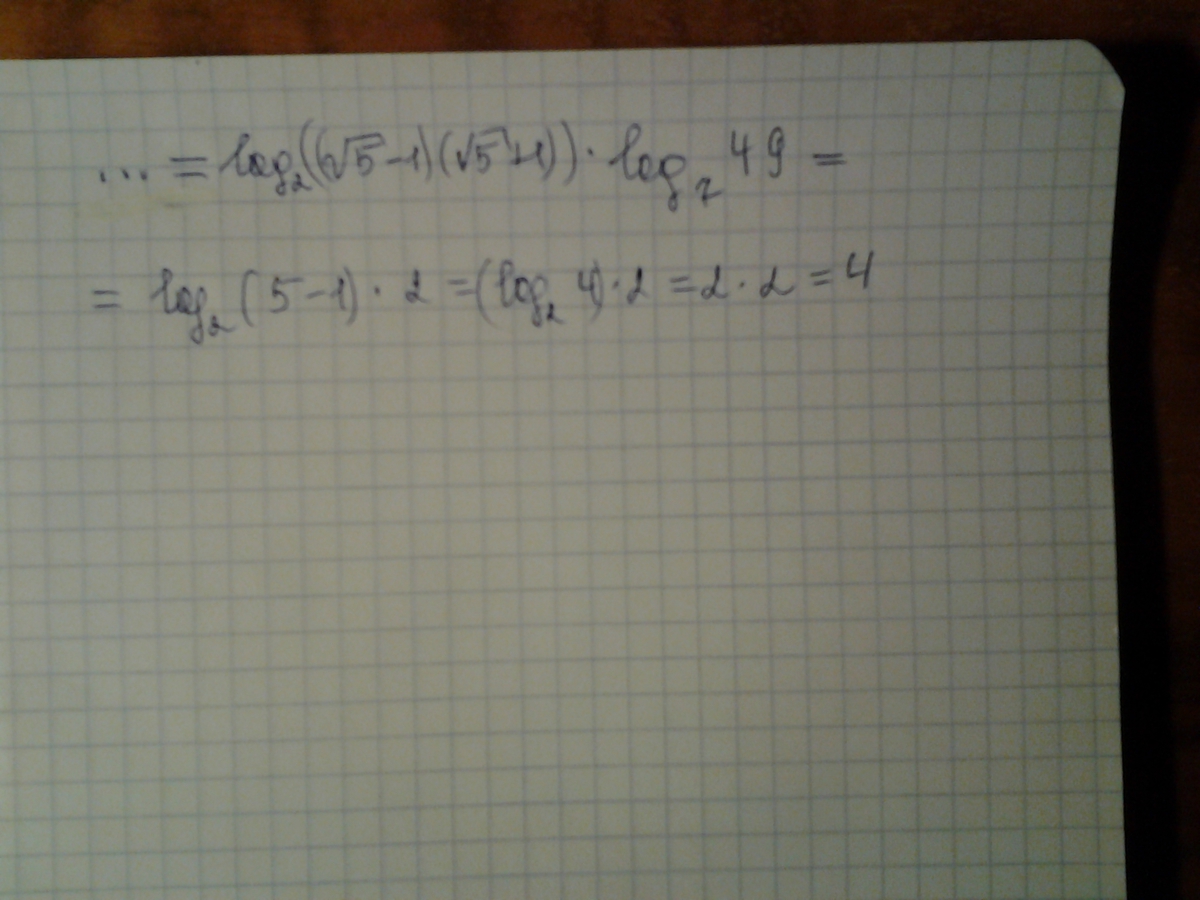 ... = log₂((√5-1)(√5+1)) · log₇ 49 =
= log₂(5-1) · 2 = (log₂ 4) · 2 = 2 · 2 = 4